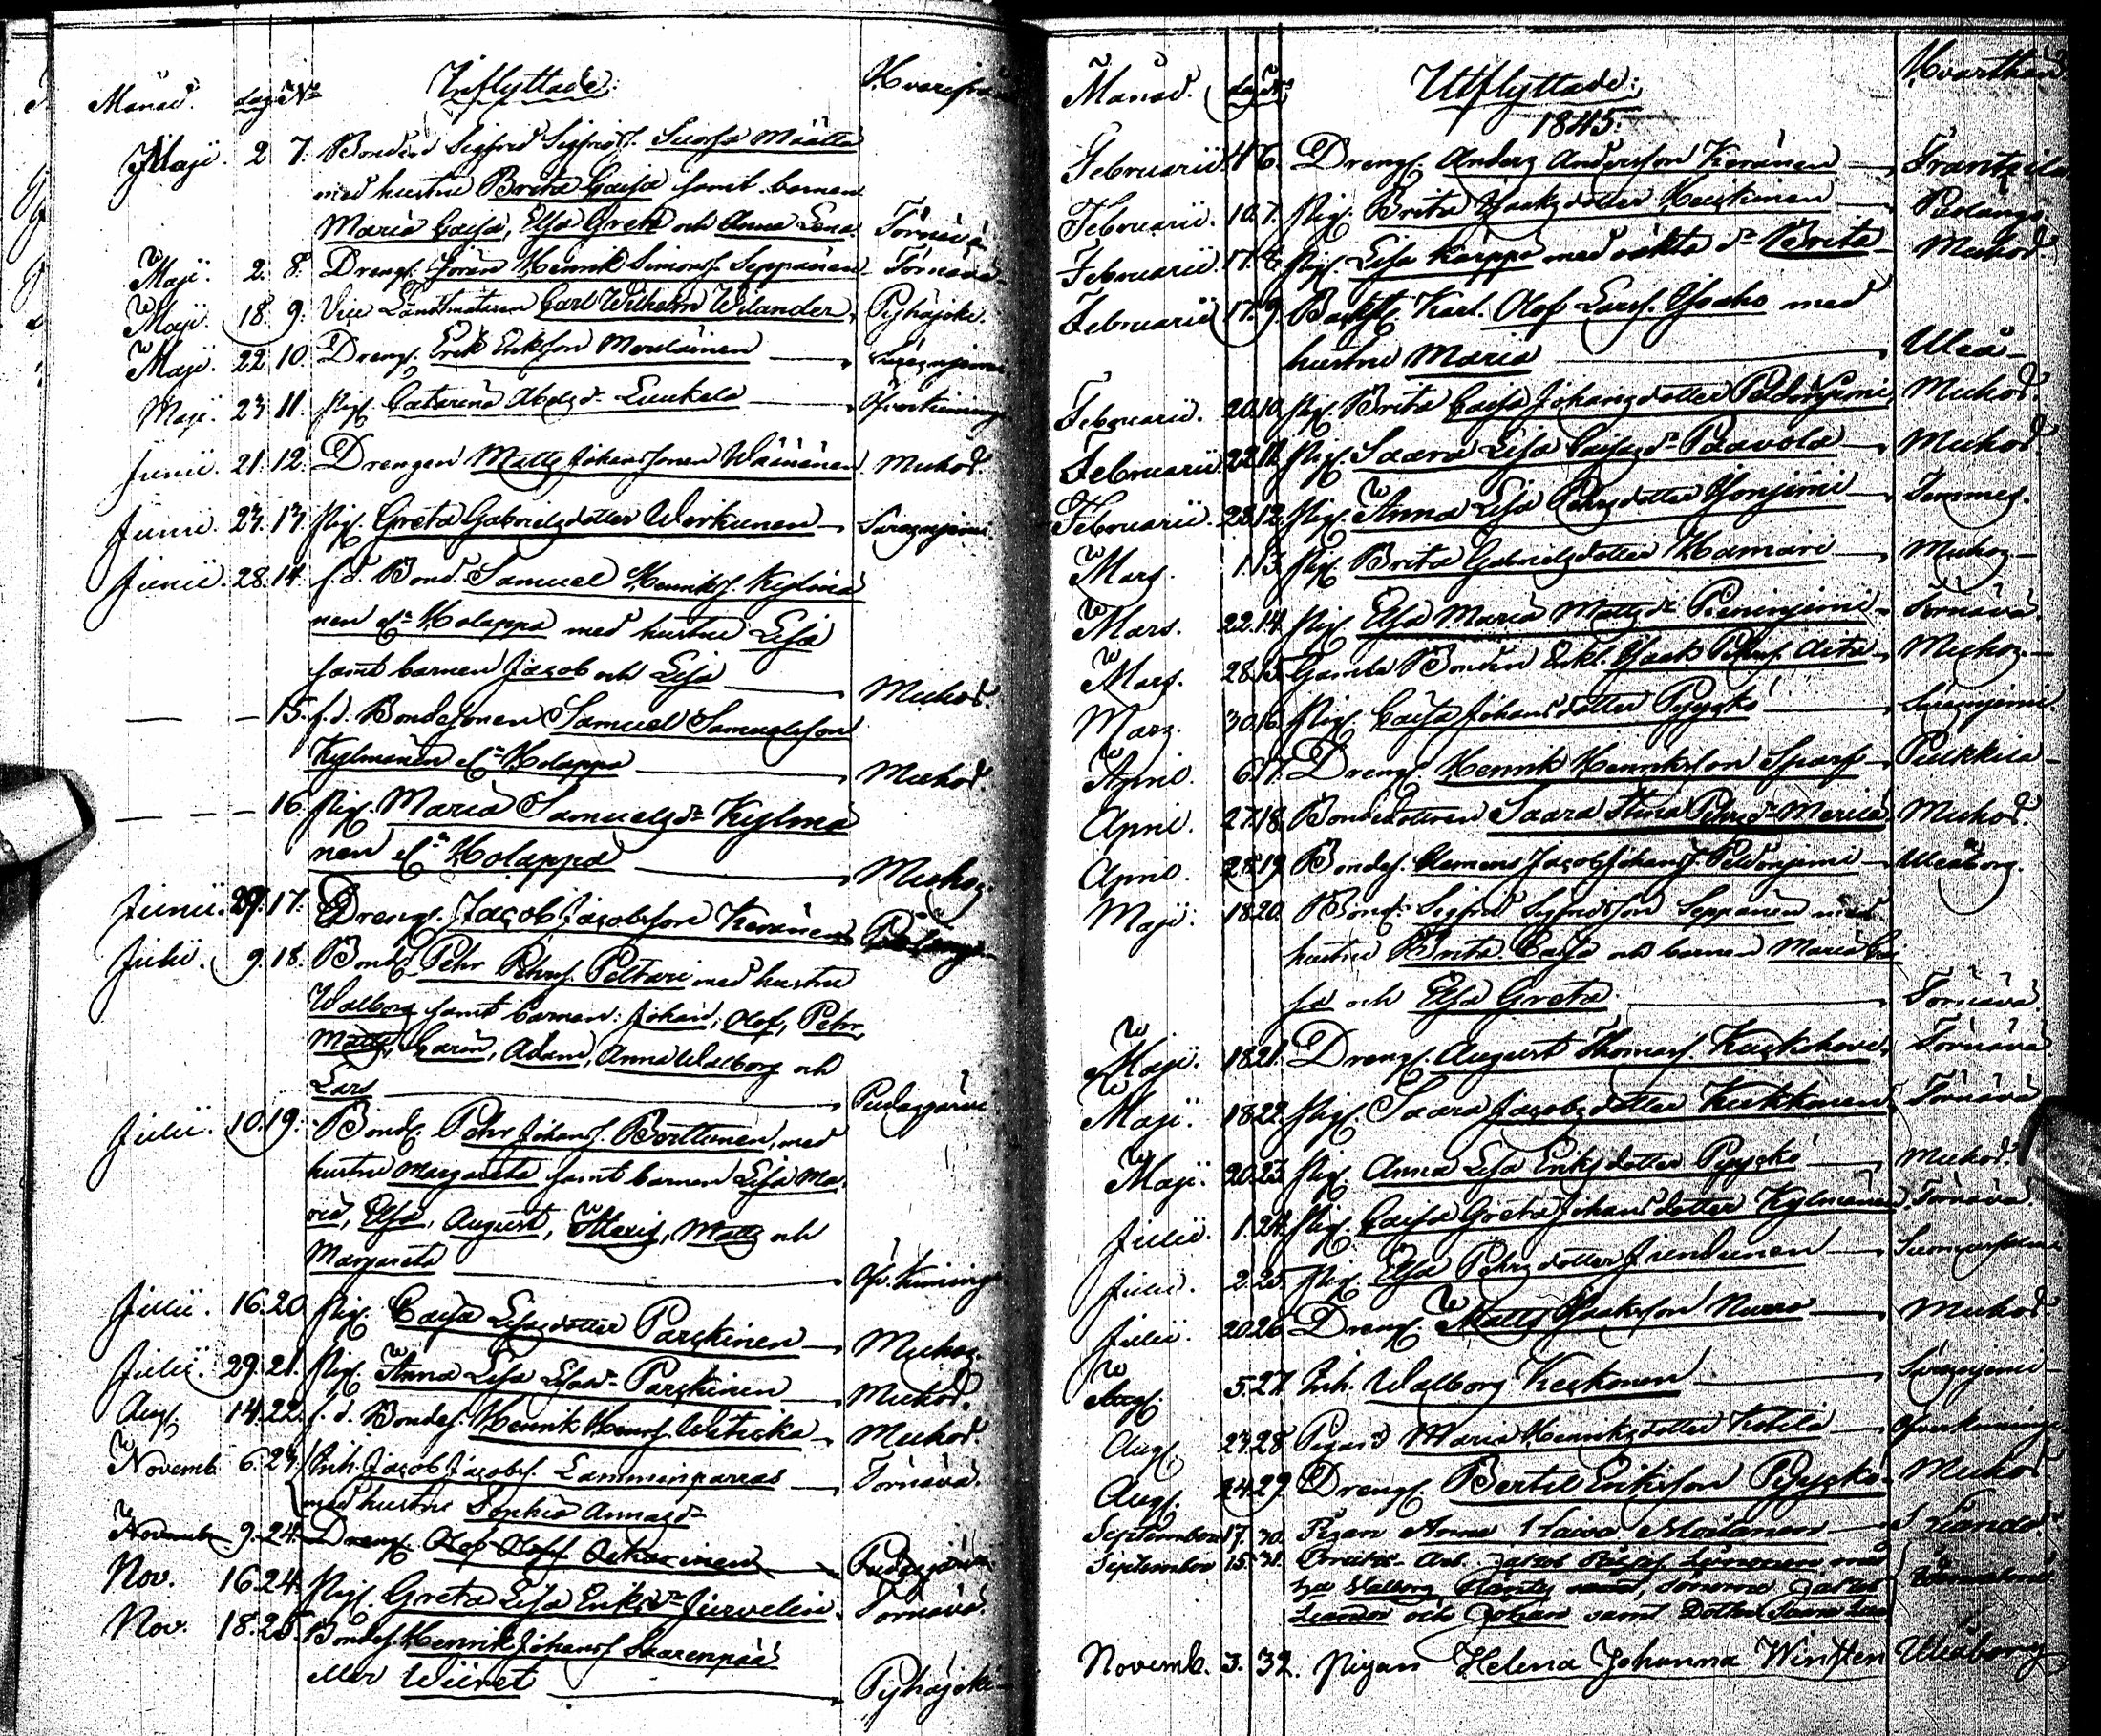 Månad. dag No Inflyttade:
Maji. 2. 7. Bonden Sigfrid Sigfridss.
med hustru Brita Caisa samt barnen
Maria Caisa, Elsa Greta och Anna Lena Törnävä
Maji. 2. 8. Drengs. Göran Henrik Simonss. Seppänen Törnävä
Maji. 18. 9. Vice Landtmätaren Carl Wilhelm Wilander Pyhäjoki.
Maji. 22. 10. Drengs. Erik Eriksson
Maji. 23 11. Pig. Catarina Abelsdr Luukela
Junii. 21. 12. Drengen Matts Johansson Wäinänen Muhos.
Junii. 23. 13. Pig. Greta Gabrielsdotter Werkunen
Junii. 28. 14. f.d. Bond. Samuel Henrikss. Kylmä
nen elr Holappa med hustru Lisa
samt barnen Jacob och Lisa Muhos.
15. f.d. Bondesonen Samuel Samuelsson
Kylmänen elr Holappa Muhos.
16. Pig. Maria Samuelsdr Kylmä
nen elr Holappa Muhos.
Junii. 29. 17. Drengs. Jacob Jacobsson Keränen
Julii. 9. 18. Bond. Pehr Pehrss. Peltari med hustru
Walborg samt barnen: Johan, Olof, Pehr,
Matts, Carin, Adam, Anna Walborg och
Lars Pudasjärvi
Julii. 10. 19. Bonds. Pehr Johanss. med
hustru Margareta samt barnen Lisa Ma
ria, Elsa, August, Matts och
Margareta Öf. Kiminge
Julii. 16. 20 Pig. Caisa Lisasdotter Parckinen Muhos.
Julii. 29. 21. Pig. Anna Lisa Lisasdr Parckinen Muhos.
Aug. 14. 22. f.d. Bondes. Henrik Henrss. Muhos.
Novemb. 6. 23. Inh. Jacob Jacobss. Lamminparras Törnävä.
med hustru Sophia Annasdr
Novemb. 9. 24. Drengs. Olof Olofss. Pudasjärvi
Nov. 16. 24. Pig. Greta Lisa Eriksdr Jurvelin Törnävä.
Nov. 18. 25. Bondes. Henrik Johanss. Saarenpää
eller Pyhäjoki
Månad. dag No Utflyttade: Hvarthän
1845.
Februarii. 4 6. Drengs. Anders Andersson Keränen Frantsila
Februarii. 10. 7. Pig. Brita Isaksdotter Heickinen
Februarii. 17. 8. Pig. Lisa Karppa med oäkta dr Brita Muhos
Februarii 17. 9. Karl. Olof Larss. med
hustru Maria Uleå
Februarii. 20. 10. Pig. Brita Caisa Johansdotter Muhos.
Februarii. 22. 11. Pig. Saara Lisa Caisasdr Paavola Muhos.
Februarii. 28. 12. Pig. Anna Lisa Pehrsdotter Temmes.
Mars. 1. 13. Pig. Brita Gabrielsdotter Hamari Muhos
Mars. 22. 14. Pig. Elsa Maria Mattsdr Törnävä.
Mars. 28. 15. Gamla Bonden Isak Pehrss. Muhos.
Mars. 30. 16. Pig. Caisa Johansdotter Pyyckö
April. 6. 17. Drengs. Henrik Henriksson Pulkkila
April. 27. 18. Bondedottren Saara Stina Pehrsdr Muhos.
April. 28. 19. Bondes. Clemens Jacob Johanss. Uleåborg.
Maji. 18. 20. Bond. Sigfrid Sigfridsson Seppänen med
hustru Brita Caisa och barnen Maria Cai
sa och Elsa Greta. Törnävä
Maji. 18. 21. Drengs. August Thomass. Törnävä
Maji. 18. 22. Pig. Saara Jacobsdotter Kukkonen Törnävä
Maji. 20. 23. Pig. Anna Lisa Eriksdotter Pyyckö Muhos.
Julii. 1. 24. Pig. Caisa Greta Johansdotter Kylmänen Törnävä.
Julii. 2. 25. Pig. Elsa Pehrsdotter Jundunen
Julii. 20. 26. Drengs. Matts Isaksson Muhos
Aug. 5. 27. Inh. Walborg Keskonen
Aug. 23. 28 Pigan Maria Henriksdotter
Aug. 24. 29. Drengs. Bertil Eriksson Pyyckö Muhos
September 17. 30. Pigan Anna Moilanen
September 15. 31. Jakob med
och Johan samt Dottren
Novemb. 3. 32. Pigan Helena Johanna Winsten Uleåborg